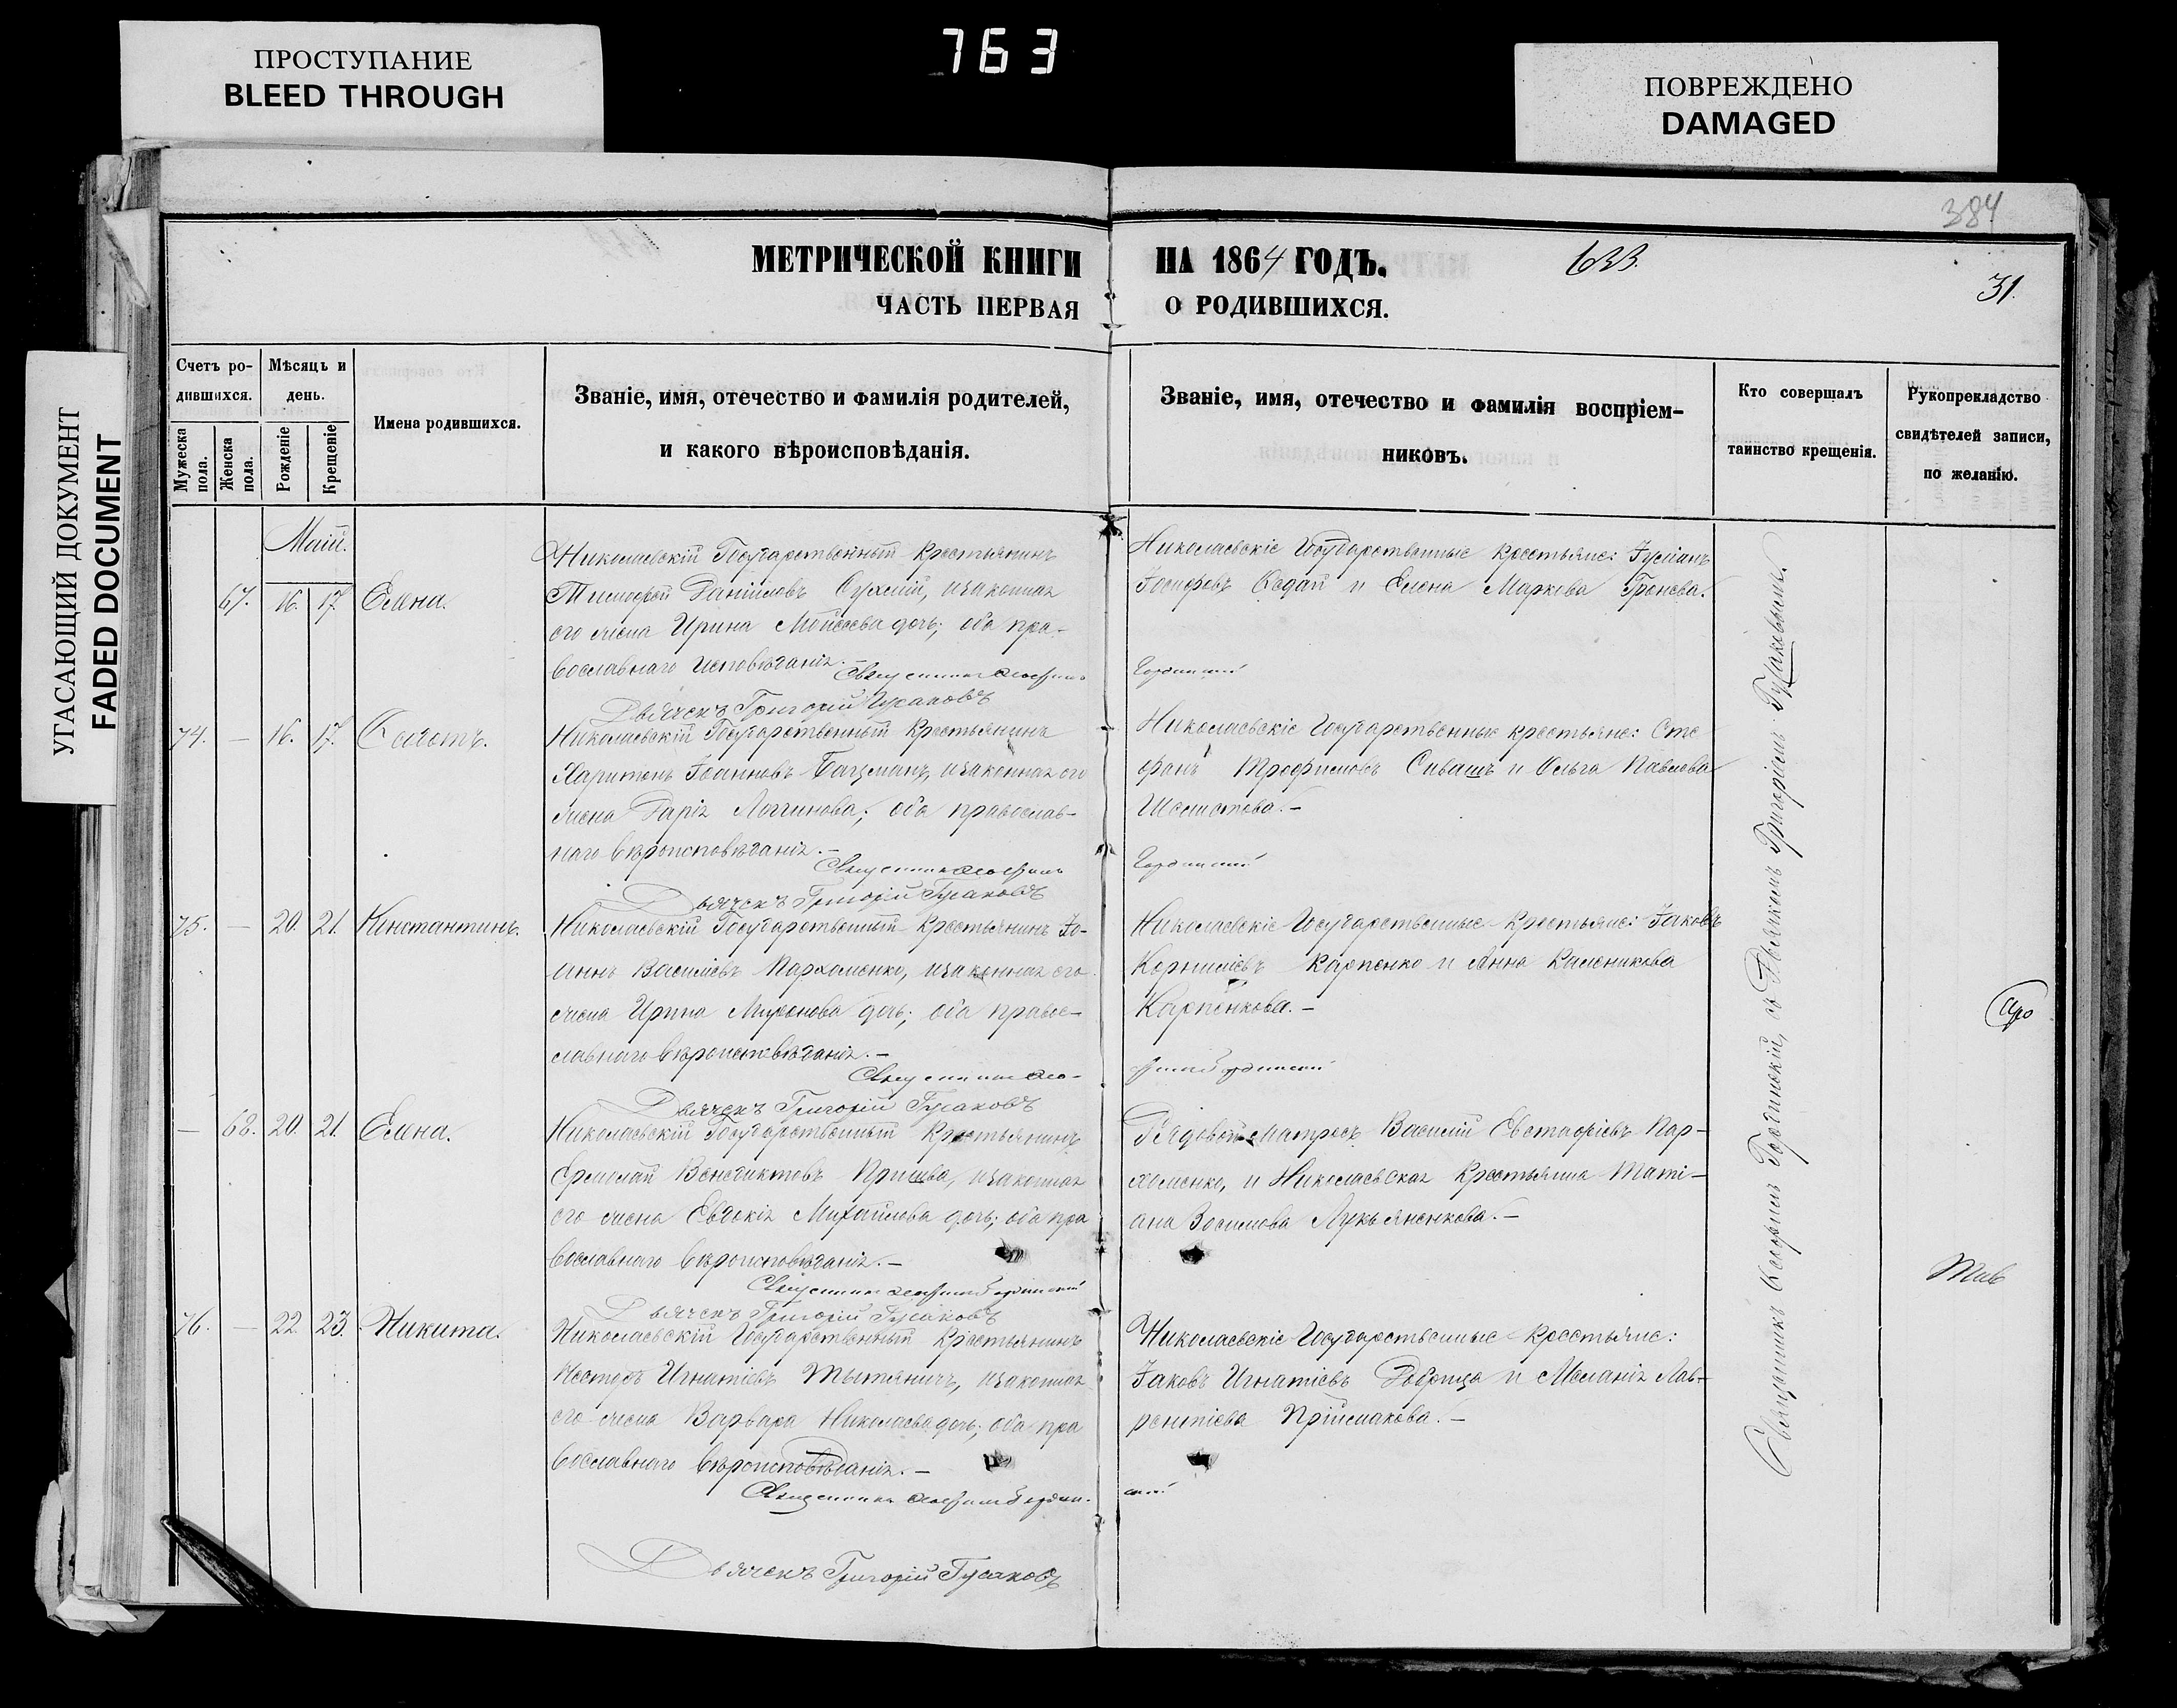 763
ПРОСТУПАНИЕ
BLEED THROUGH
ПОВРЕЖДЕНО
DAMAGED
УГАСАЮЩИЙ ДОКУМЕНТ
FADED DOCUMENT
384
МЕТРИЧЕСКОЙ КНИГИ НА 1864 ГОДЪ.
633.
31.
ЧАСТЬ ПЕРВАЯ О РОДИВШИХСЯ.
Счетъ ро-
дившихся.
Мужеска пола.
Женска пола.
Мѣсяцъ и
день.
Рожденіе
Крещеніе
Имена родившихся.
Званіе, имя, отечество и фамилія родителей,
и какого вѣроисповѣданія.
Званіе, имя, отечество и фамилія воспріем-
никовъ.
Кто совершалъ
таинство крещенія.
Рукоприкладство
свидѣтелей записи,
по желанію.
Маій.
67. 16. 17. Елена.
Николаевскій Государственный Крестьянинъ
Тимофей Даніиловъ изаконная
его жена Ирина Моисеева дочь; оба пра-
вославнаго исповѣданія.
Дьячекъ Григорій Гусаковъ
Николаевскіе Государственные крестьяне:
Іосифовъ и Елена Маркова
74. — 16. 17.
Николаевскій Государственный Крестьянинъ
Харитонъ Іоанновъ Бацманъ, изаконная его
жена Дарія Логгинова; оба православ-
наго вѣроисповѣданія.—
Дьячекъ Григорій Гусаковъ
Николаевскіе Государственные крестьяне: Сте
фанъ Трофимовъ Сивашъ и Ольга Павлова
75. — 20. 21. Константинъ.
Николаевскій Государственный Крестьянинъ Іо-
аннъ Василіевъ Пархоменко, изаконная его
жена Ирина Миронова дочь; оба право-
славнаго вѣроисповѣданія.—
Дьячекъ Григорій Гусаковъ
Николаевскіе Государственные Крестьяне: Іаковъ
Корниліевъ Карпенко и Анна Каленикова
Карпенкова.—
— 68. 20. 21. Елена.
Николаевскій Государственный Крестьянинъ
Ермолай Венедиктовъ изаконная
его жена Евдокія Михайлова дочь; оба пра
вославнаго вѣроисповѣданія.—
Дьячекъ Григорій Гусаковъ
Рядовой Матросъ Василій Евстафіевъ Пар-
хоменко, и Николаевская Крестьянка Таті-
ана Лукьяненкова.—
76. — 22. 23. Никита.
Николаевскій Государственный Крестьянинъ
Игнатіевъ изаконная
его жена Варвара Николаева дочь; оба пра
вославнаго вѣроисповѣданія.—
Дьячекъ Григорій Гусаковъ
Николаевскіе Государственные Крестьяне:
Іаковъ Игнатіевъ Добрица и Меланія Лав-
рентіева Пріймакова.—
Священникъ Гординскій, съ Дьячкомъ Григоріемъ Гусаковымъ.